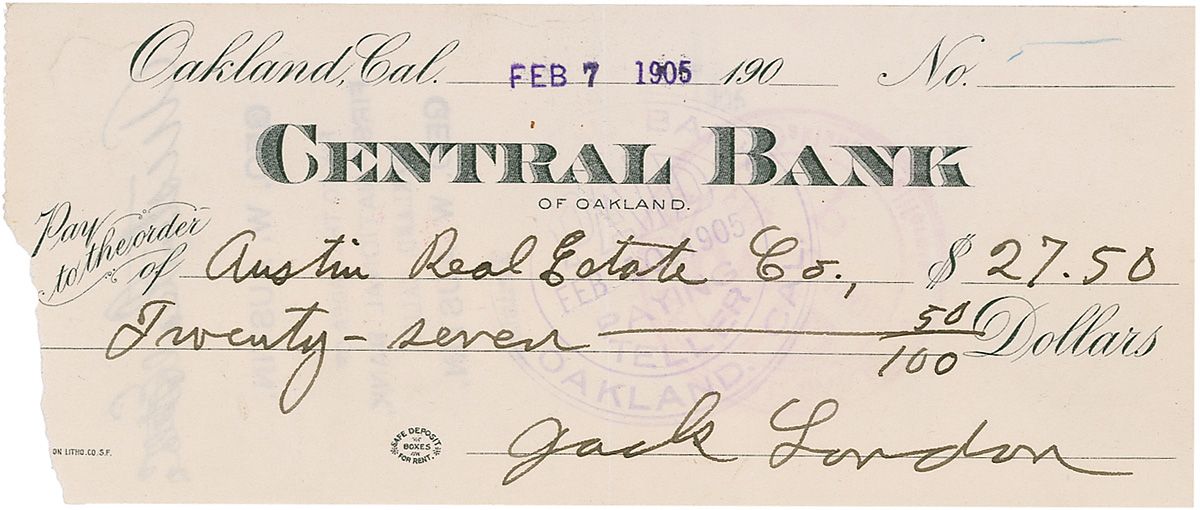 Oakland, Cal. FEB 7 1905 190 No.
CENTRAL BANK
OF OAKLAND.
Pay to the order of Austin Real Estate Co., $ 27.50
Twenty-seven 50/100 Dollars
SAFE DEPOSIT BOXES FOR RENT.
Jack London
ON LITHO. CO. S.F.
FEB 1905
PAYING TELLER
OAKLAND, CAL.